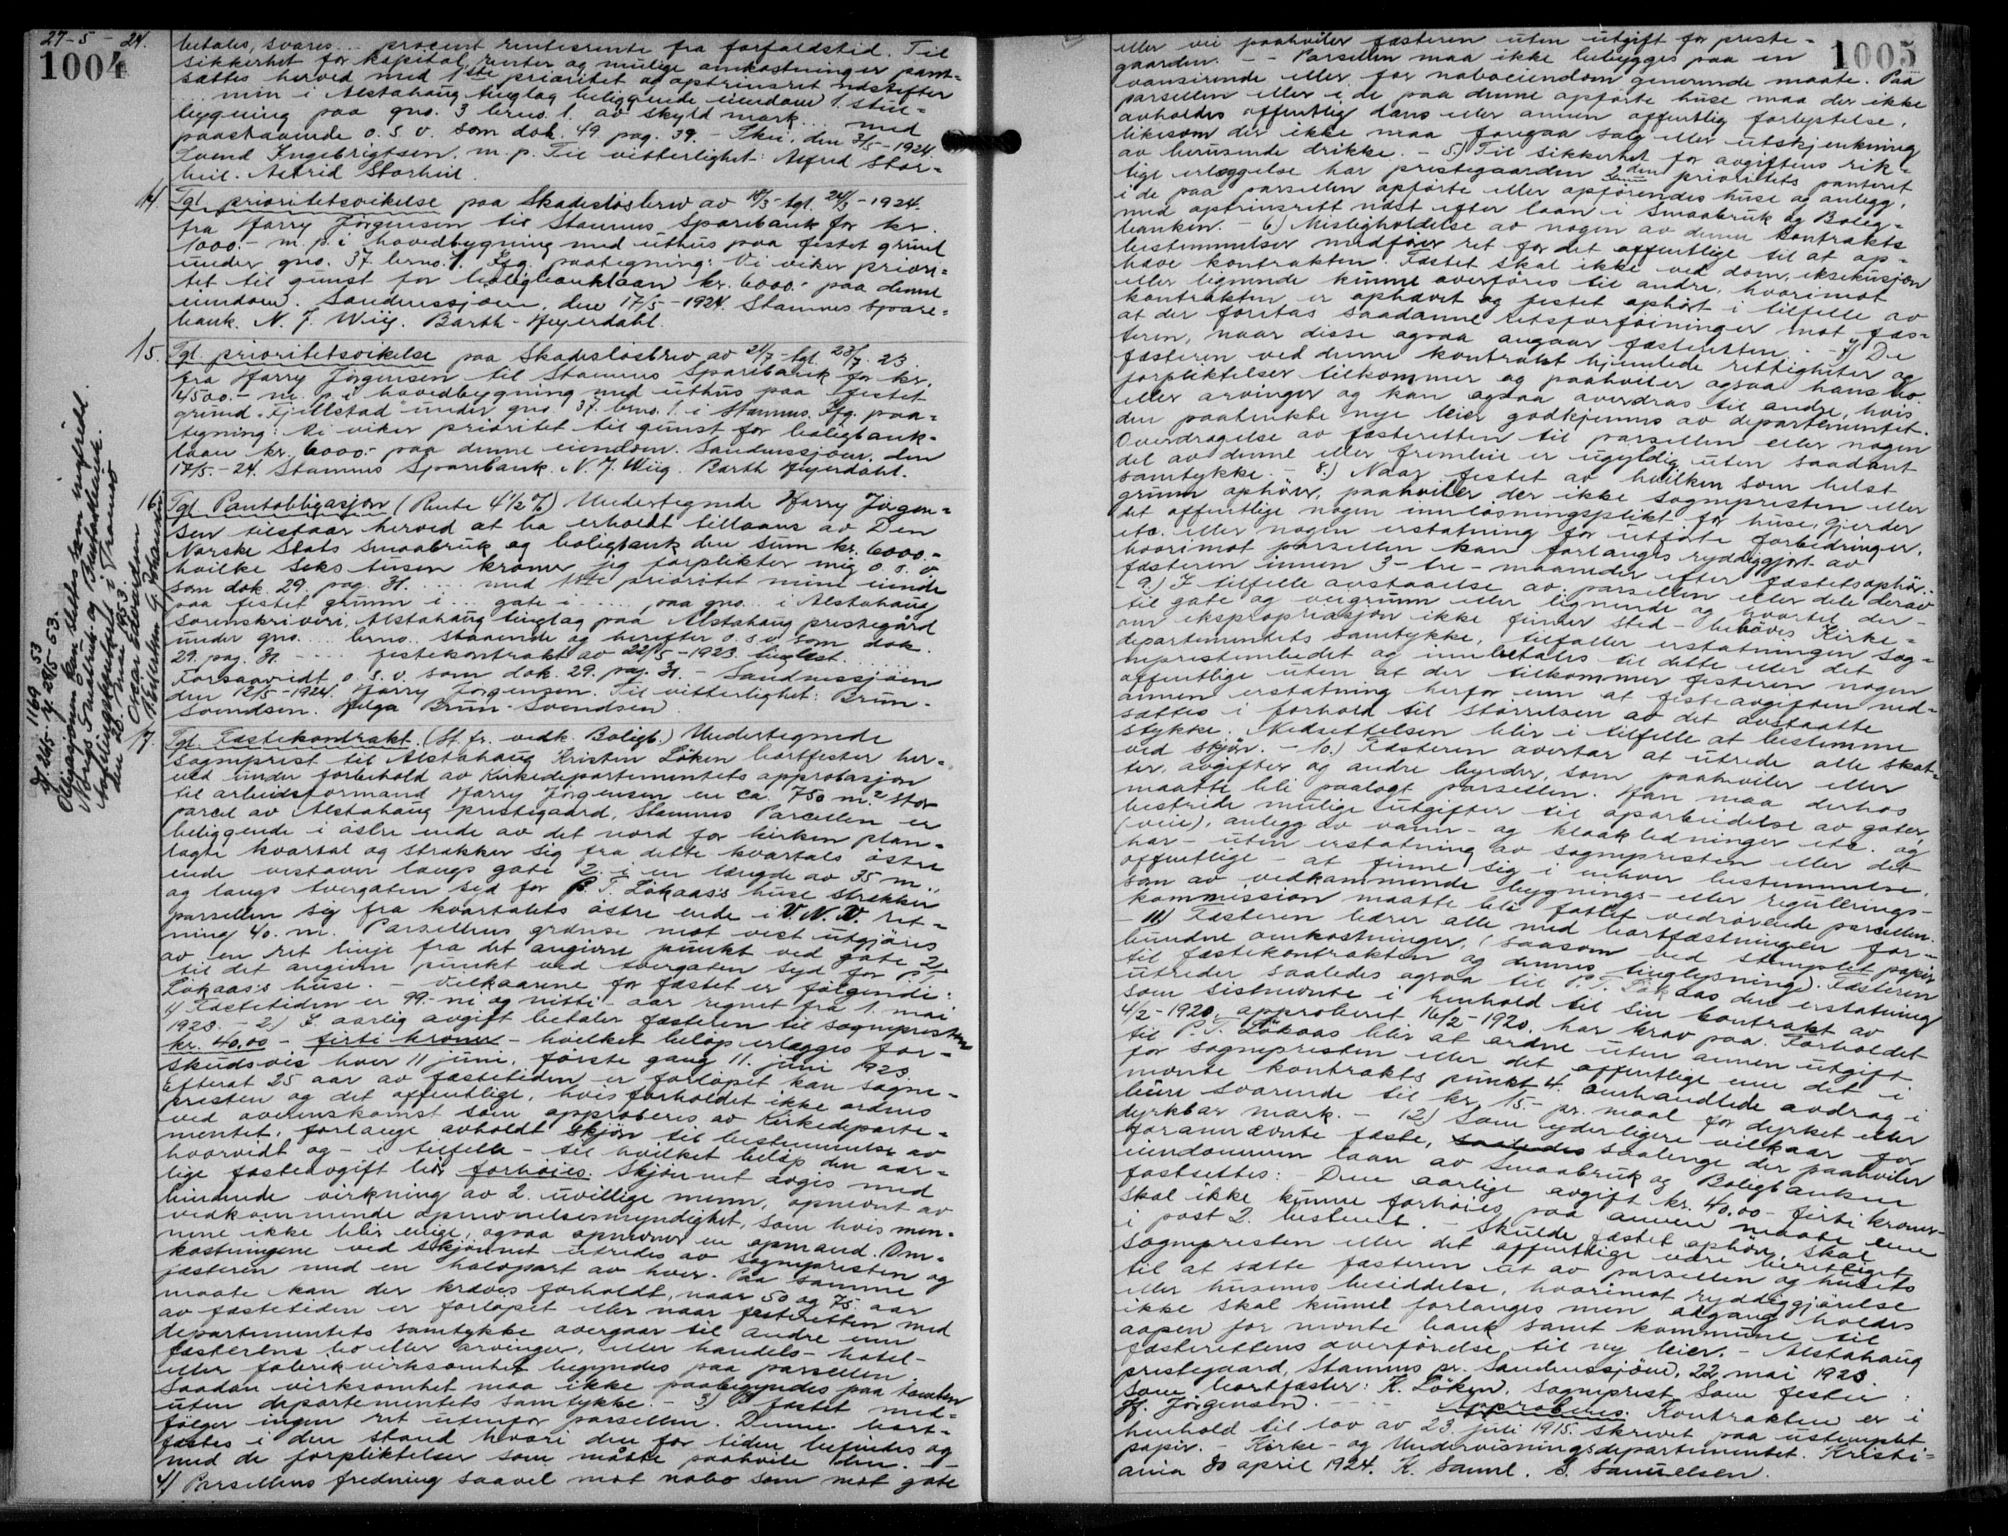 27-5-24.
1004
betales, svares ... procent rentesrente fra forfaldstid. Til
sikkerhet for kapital, renter og mulige omkostninger pant-
sættes herved med 1ste prioritet og optrinsret næstefter
... min i Alstahaug tinglag beliggende eiendom 1. stue-
bygning paa gno. 3 brno. 1. av skyld mark ... med
paastaaende o. s. v. som dok. 49 pag. 39. - Skei, den 31/5-1924.
Svend Ingebrigtsen. m. p. Til vitterlighet: Alfred Stor-
heil. Astrid Storheil.
14. Tgl. prioritetsvikelse paa Skadesløsbrev av 18/3- tgl. 24/3-1924.
fra Harry Jørgensen til Stamnes Sparebank for kr.
1000.- m. p. i hovedbygning med uthus paa festet grund
under gno. 37 brno. 1. Sfg. paategning: Vi viker priori-
tet til gunst for boligbanklaan kr. 6000.- paa denne
eiendom. Sandnessjøen, den 17/5-1924. Stamnes Spare-
bank. N. J. Wiig. Barth-Heyerdahl.
15. Tgl. prioritetsvikelse paa Skadesløsbrev av 21/7- tgl. 23/7. 23
fra Harry Jørgensen til Stamnes Sparebank for kr.
4500.- m. p. i hovedbygning med uthus paa festet
grund "Fjellstad" under gno. 37. brno. 1. i Stamnes. Sfg. paa-
tegning: Vi viker prioritet til gunst for boligbank-
laan kr. 6000.- paa denne eiendom. Sandnessjøen, den
17/5.-24. Stamnes Sparebank. N. J. Wiig. Barth Heyerdahl.
16. Tgl. Pantobligasjon (Rente 4 1/2 %) Undertegnede Harry Jørgen-
sen tilstaar herved at ha erholdt tillaans av Den
Norske Stats Smaabruk og boligbank den sum kr. 6000.-
hvilke seks tusen kroner jeg forplikter mig o. s. v.
som dok. 29. pag. 31. ... med 1ste prioritet mine eiende
paa festet grunn i ... gate i ... paa gno. .. i Alstahaug
sorenskriveri, Alstahaug tinglag paa Alstahaug prestegård
under gno. ... brno. .. staaende og herefter o. s. v. som dok.
29. pag. 31. - ... festekontrakt av 22/5-1923 tinglest. ...
Forsaavidt o. s. v. som dok. 29. pag. 31. - Sandnessjøen
den 12/5-1924. Harry Jørgensen. Til vitterlighet: Brun-
Svendsen. Helga Brun-Svendsen.
D. 1169 53
J 245 - y 28/5-53.
Obligasjonen kan slettes som innfridd.
Norges Småbruk- og Bustadbank.
Avdelingskontoret i Tromsø
den 20. mai 1953.
Oscar Edvardsen
17. Tgl. Fæstekontrakt. (St. fr. vedk. Boligb.) Undertegnede
sogneprest til Alstahaug Kristen Løken bortfester her-
ved under forbehold av Kirkedepartementets approbasjon
til arbeidsformand Harry Jørgensen en ca. 750 m.² stor
parcel av Alstahaug prestegaard, Stamnes Parcellen er
beliggende i østre ende av det nord for kirken plan-
lagte kvartal og strækker sig fra dette kvartals østre
ende vestover langs gate 2. i en længde av 35 m.,
og langs tvergaten syd for P. T. Løkaas's huse strækker
parsellen sig fra kvartalets østre ende i V. N. V. ret-
ning 40. m. Parsellens grænse mot vest utgjøres
av en ret linje fra det angivne punkt ved gate 2
til det angivne punkt ved tvergaten syd for P. T.
Løkaas's huse. - Vilkaarene for fæstet er følgende:
1) Fæstetiden er 99 - ni og nitti - aar regnet fra 1. mai
1923. - 2) I aarlig avgift betaler fæsteren til sognepresten
kr. 40,00 - firti kroner - hvilket beløp erlægges for-
skudsvis hver 11 juni, første gang 11. juni 1923
Efterat 25 aar av fæstetiden er forløpet kan sogne-
presten og det offentlige, hvis forholdet ikke ordnes
ved overenskomst som approberes av Kirkedeparte-
mentet, forlange avholdt skjøn til bestemmelse av
hvorvidt og - i tilfelle - til hvilket beløp den aar-
lige fæsteavgift blir forhøies. Skjønnet avgis med
bindende virkning av 2. uvillige menn, opnevnt av
vedkommende opnevnelsesmyndighet, som hvis men-
nene ikke blir enige, ogsaa opnevner en opmand. Om-
kostningene ved skjønnet utredes av sognepresten og
fæsteren med en halvpart av hver. Paa samme
maate kan der kræves forholdt, naar 50 og 75. aar
av fæstetiden er forløpet eller naar festeretten med
departementets samtykke overgaar til andre enn
fæsterens bo eller arvinger, eller handels- hotel-
eller fabrikvirksomhet begyndes paa parsellen.
Saadan virksomhet maa ikke paabegyndes paa tomten
uten departementets samtykke. - 3) Fæstet med-
følger ingen ret utenfor parsellen. Denne bort-
fæstes i den stand hvori den for tiden befindes og
med de forpliktelser som måtte paahvile den. -
4) Parsellens fredning saavel mot nabo som mot gate
1005
eller vei paahviler fæsteren uten utgift for preste-
gaarden. - - Parsellen maa ikke bebygges paa en
vansirende eller for naboeiendom generende maate. Paa
parsellen eller i de paa denne opførte huse maa der ikke
avholdes offentlig dans eller annen offentlig forlystelse,
likesom der ikke maa foregaa salg eller utskjenkning
av berusende drikke. - 5) Til sikkerhet for avgiftens rik-
tige erlæggelse har prestegaarden 2den prioritets panteret
i de paa parsellen opførte eller opførendes huse og anlegg,
med optrinsrett næst efter laan i Smaabruk og Bolig-
banken. - 6) Misligholdelse av nogen av denne kontrakts
bestemmelser medfører ret for det offentlige til at op-
hæve kontrakten. Fæstet skal ikke ved dom, eksekusjon
eller lignende kunne overføres til andre, hvorimot
kontrakten er ophævet og festet ophørt i tilfelle av
at der foretas saadanne retsforføininger mot fæs-
teren, naar disse ogsaa angaar fæsteretten. - 7) De
fæsteren ved denne kontrakt hjemlede rettigheter og
forpliktelser tilkommer og paahviler ogsaa hans bo
eller arvinger og kan ogsaa overdras til andre, hvis
den paatenkte nye leier godkjennes av departementet.
Overdragelse av fæsteretten til parsellen eller nogen
del av denne eller fremleie er ugyldig uten saadant
samtykke. - 8.) Naar festet av hvilken som helst
grunn ophører, paahviler der ikke sognepresten eller
det offentlige nogen innløsningsplikt for huse, gjerder
etc. eller nogen erstatning for utførte forbedringer,
hvorimot parsellen kan forlanges ryddiggjort av
fæsteren innen 3 - tre - maaneder efter fæstets ophør.
- 9.) I tilfelle avstaaelse av parsellen eller dele derav
til gate og veigrunn eller lignende og hvortil der -
om ekspropriasjon ikke finner sted - behøves Kirke-
departementets samtykke, tilfaller erstatningen sog-
neprestembedet og innbetales til dette eller det
offentlige uten at der tilkommer festeren nogen
annen erstatning herfor enn at festeavgiften ned-
sættes i forhold til størrelsen av det avstaatte
stykke. Nedsettelsen blir i tilfelle at bestemme
ved skjøn. - 10.) Fæsteren overtar at utrede alle skat-
ter, avgifter og andre byrder, som paahviler eller
maatte bli paalagt parsellen. Han maa derhos
bestride mulige utgifter til oparbeidelse av gater,
(veie), anlegg av vann- og kloakledninger etc. og
har - uten erstatning av sognepresten eller det
offentlige - at finne sig i enhver bestemmelse,
som av vedkommende bygnings- eller regulerings-
kommission maatte bli fattet vedrørende parsellen.
- 11.) Fæsteren bærer alle med bortfæstningen for-
bundne omkostninger, (saasom ved stemplet papir
til fæstekontrakten og dennes tinglysning). Fæsteren
utreder saaledes ogsaa til P. T. Løkaas den erstatning
som sistnevnte i henhold til sin kontrakt av
4/2-1920, approbert 16/2-1920, har krav paa. Forholdet
til P. T. Løkaas blir at ordne uten annen utgift
for sognepresten eller det offentlige enn det i
nevnte kontrakts punkt 4. omhandlede avdrag i
leien svarende til kr. 15.- pr. maal for dyrket eller
dyrkbar mark. - 12) Som yderligere vilkaar for
forannævnte fæste, saalenge der paahviler
eiendommen laan av Smaabruk og Boligbanken
fastsettes: - Den aarlige avgift kr. 40.00 - firti kroner -
skal ikke kunne forhøies paa annen maate enn
i post 2. bestemt. - Skulde fæstet ophøre, skal
sognepresten eller det offentlige være berettiget
til at sætte fæsteren ut av parsellen og husets
eller husenes besiddelse, hvorimot ryddiggjørelse
ikke skal kunne forlanges men adgang holdes
aapen for nevnte bank samt kommune til
fæsterettens overførelse til ny leier. - Alstahaug
prestegaard, Stamnes pr. Sandnessjøen, 22 mai 1923.
Som bortfæster: K. Løken, sogneprest Som fester:
H. Jørgensen. - - - Approberes. Kontrakten er i
henhold til lov av 23. juli 1915 skrevet paa ustemplet
papir. - Kirke- og Undervisningsdepartementet. Kristi-
ania 30 april 1924. K. Saml. S. Samuelsen.